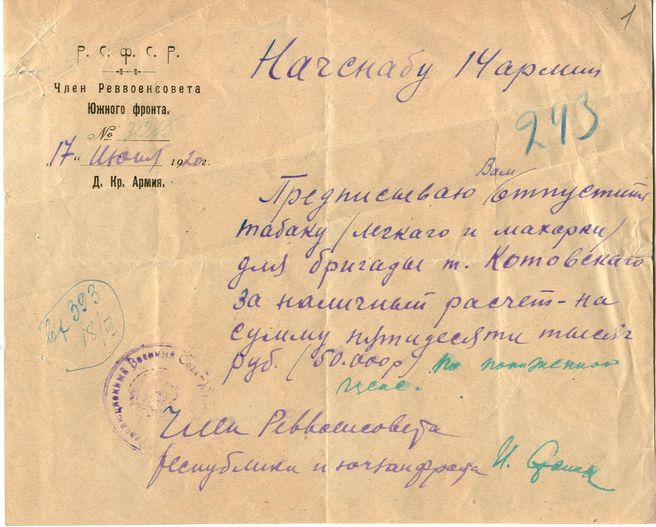 1
Р. С. Ф. С. Р.
Член Реввоенсовета
Южного фронта.
№
„17“ июня 1920г.
Д. Кр. Армия.
Начснабу 14 армии
243
Предписываю Вам отпустить
табаку /легкаго и махорки/
для бригады т. Котовскаго
за наличный расчет - на
сумму пятидесяти тысяч
руб. /50.000р/ по пониженной
цене.
Вх 393
Революционный Военный Совет
Член Реввоенсовета
республики и югзапфронта И. Сталин